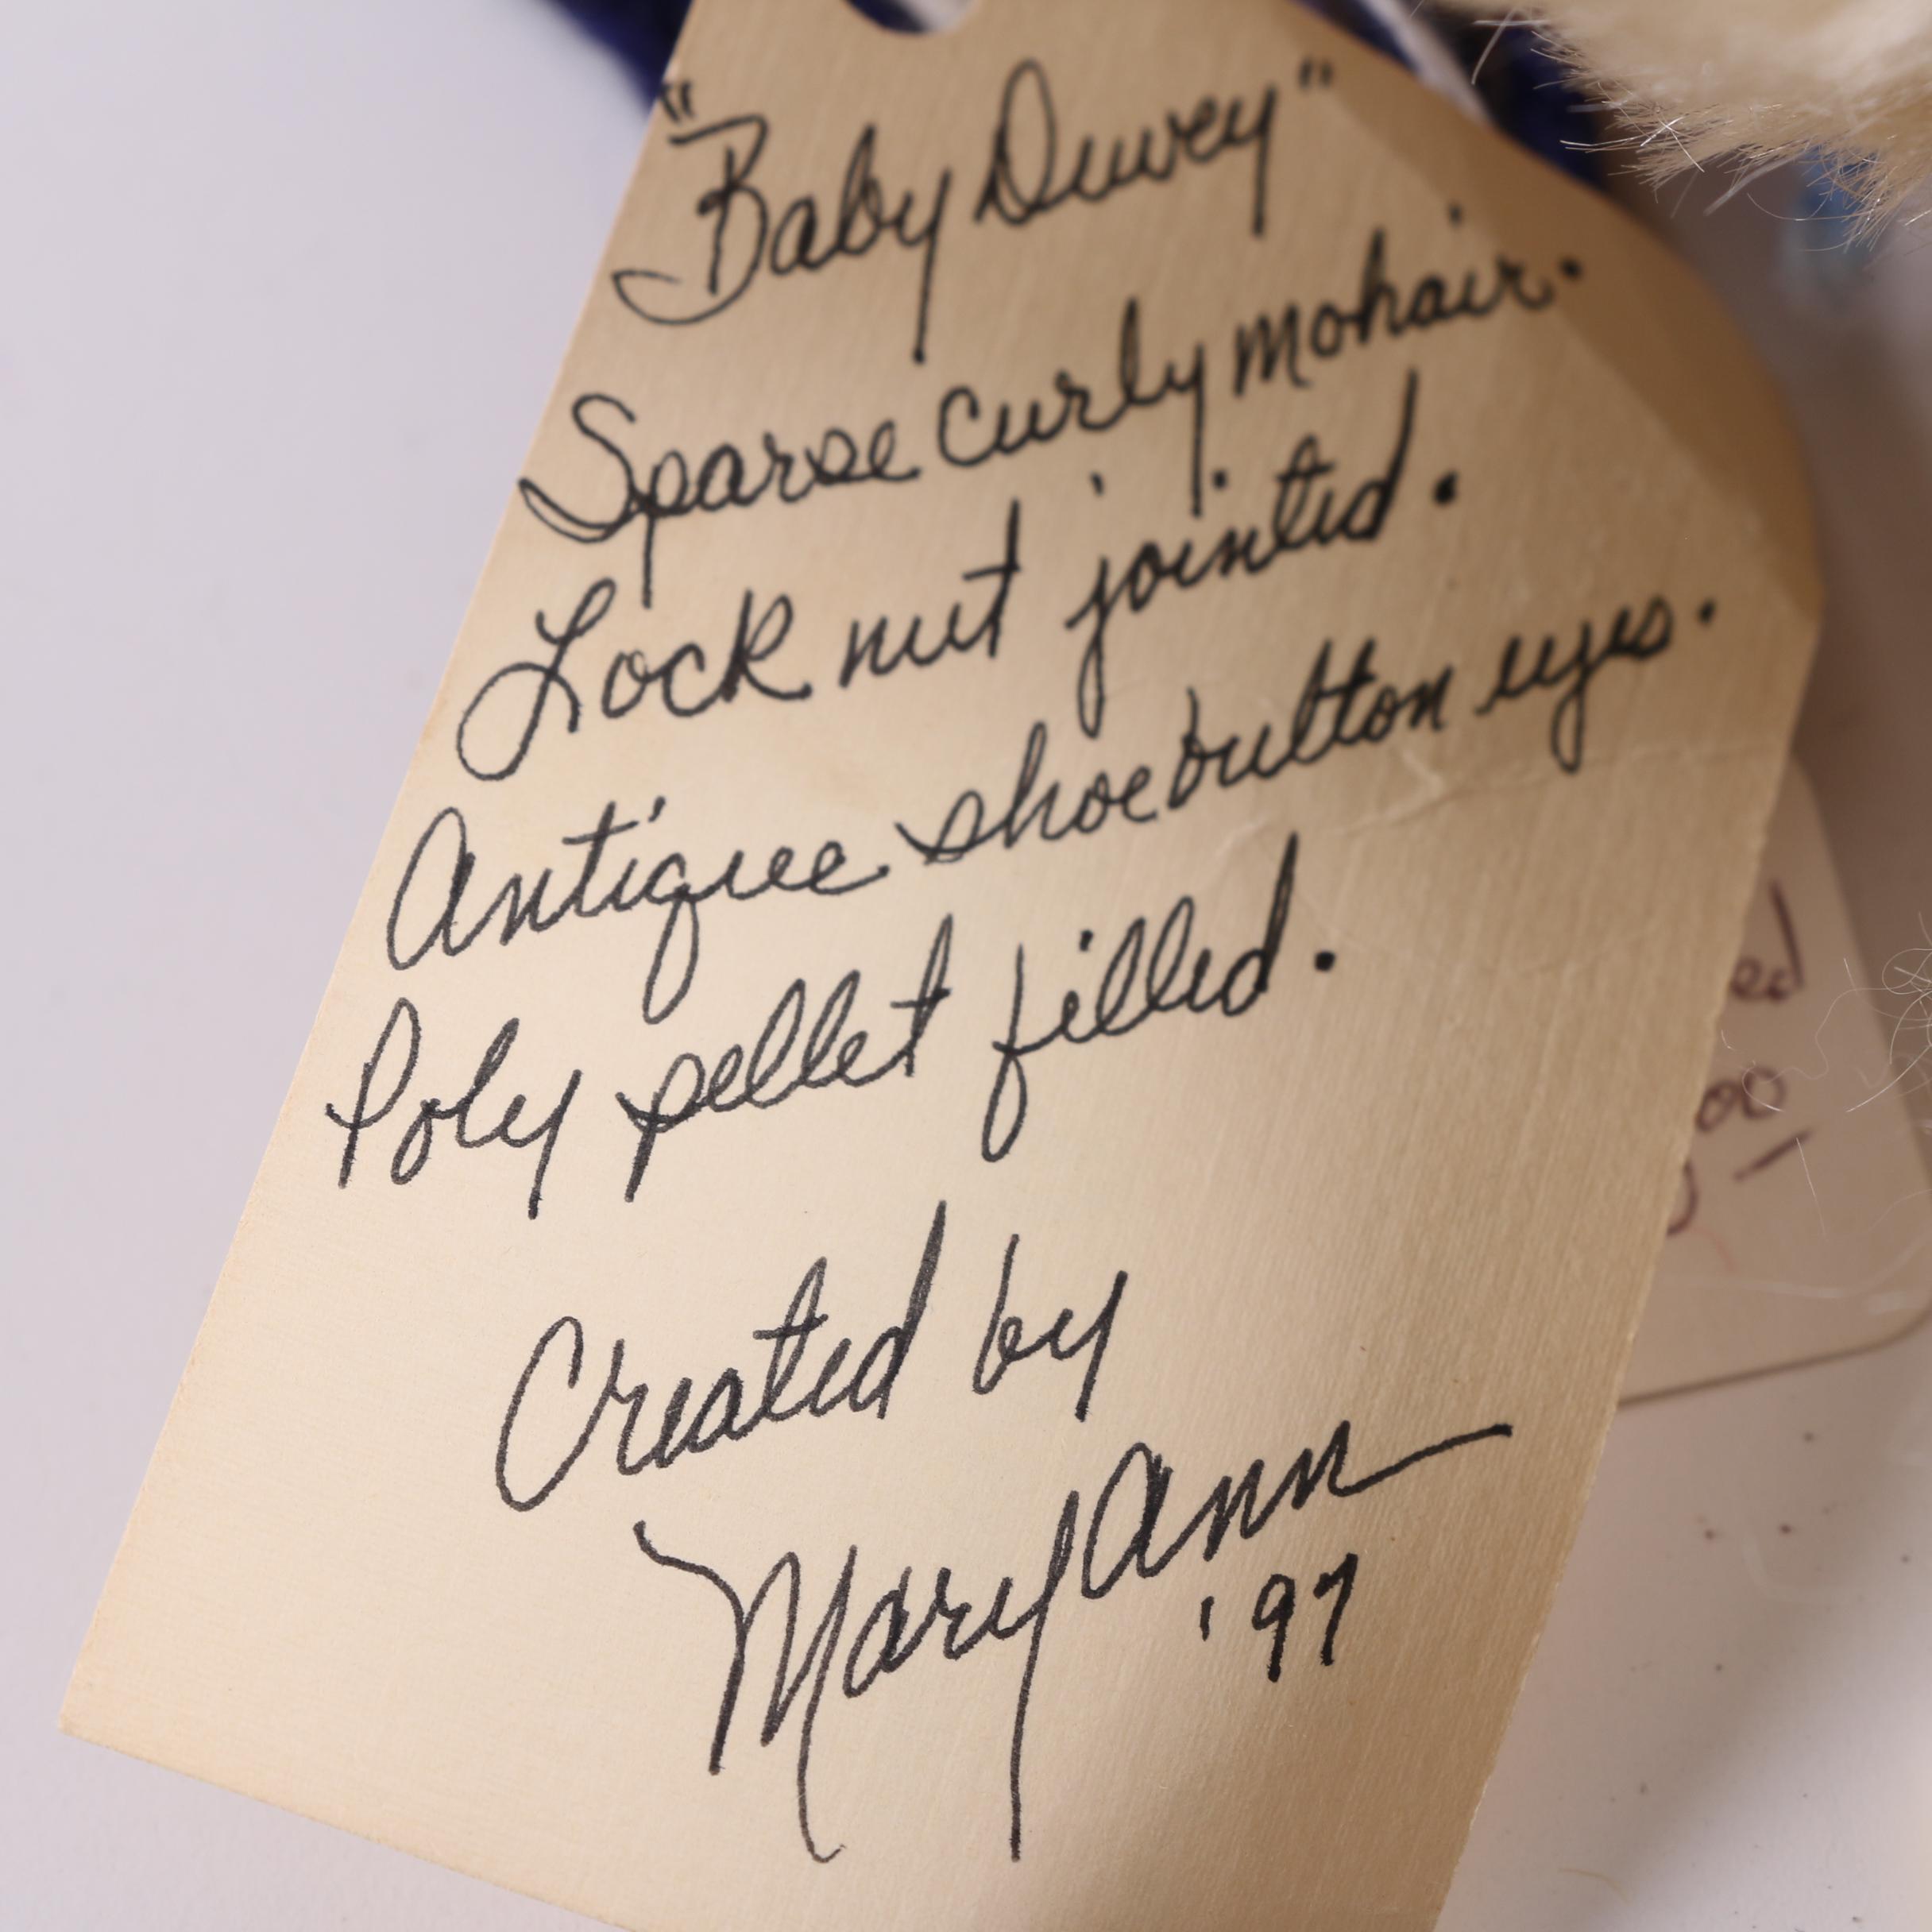 "Baby Dewey"
Sparse curly mohair.
Lock nut jointed.
Antique shoebutton eyes.
Poly pellet filled.
Created by
Mary Ann
'97
ed
00